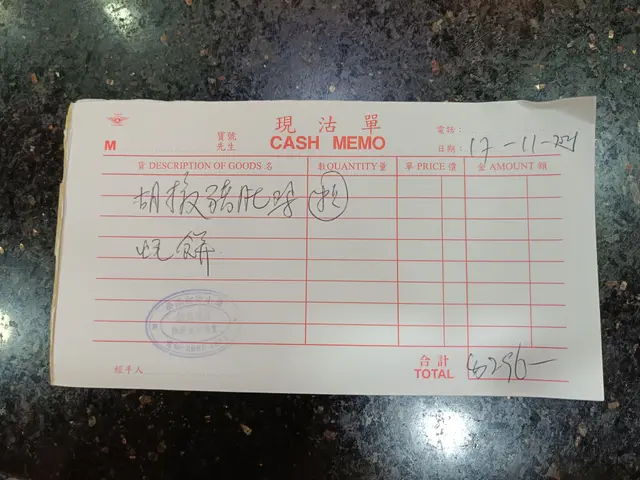 現沽單
CASH MEMO
M
寶號
先生
電話:
日期: 17-11-201
貨 DESCRIPTION OF GOODS 名
數 QUANTITY 量
單 PRICE 價
金 AMOUNT 額
胡椒豬肚
燒餅
經手人
合計
TOTAL
$296-